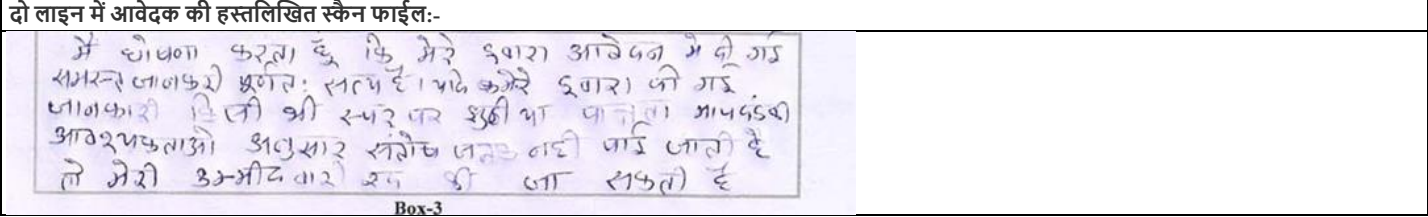 दो लाइन में आवेदक की हस्तलिखित स्कैन फाईल:-
मै घोषणा करता हूँ कि मेरे द्वारा आवेदन मे दी गई
समस्त जानकारी पूर्णत: सत्य है। यदि मेरे द्वारा की गई
जानकारी किसी भी स्तर पर झुठी या पात्रता मापदंडकी
आवश्यकताओ अनुसार संतोष जनक नही पाई जाती है
तो मेरी उम्मीदवारी रद्द की जा सकती है
Box-3